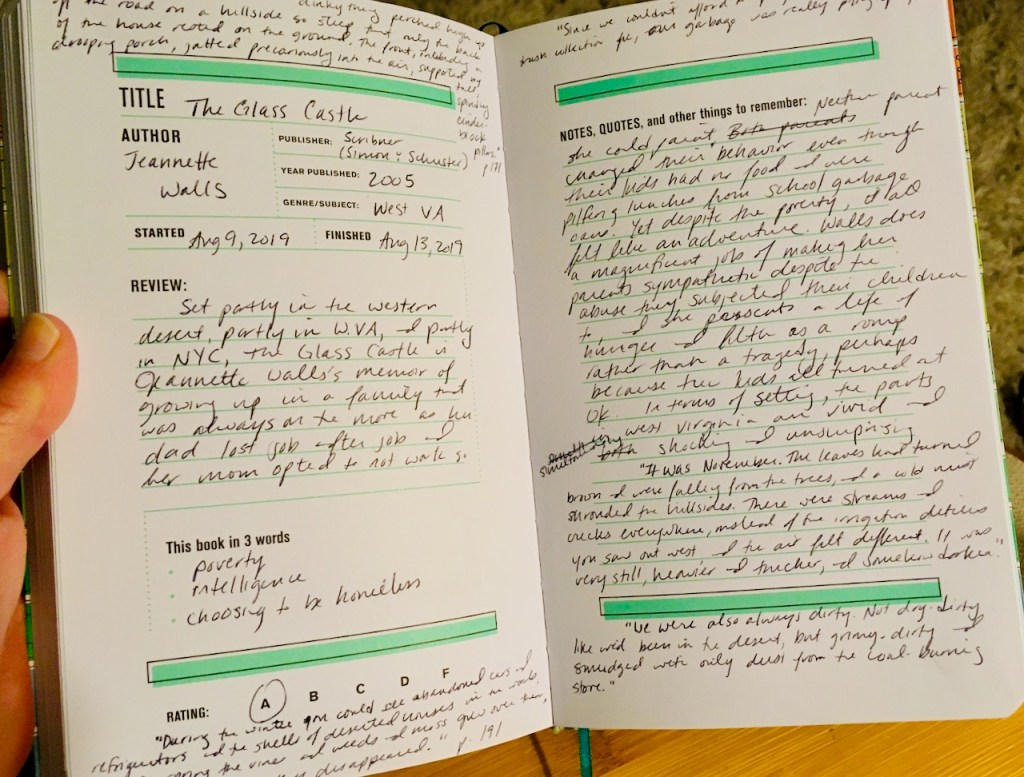 the road on a hillside so steep, that only the back
of the house rested on the ground. The front, including a
drooping porch, jutted precariously into the air, supported by
tall,
spindly
cinder-
block
pillars."
p 171
TITLE The Glass Castle
AUTHOR Jeannette Walls
PUBLISHER: Scribner (Simon & Schuster)
YEAR PUBLISHED: 2005
GENRE/SUBJECT: West VA
STARTED Aug 9, 2019 FINISHED Aug 13, 2019
REVIEW:
Set partly in the western
desert, partly in W.VA, & partly
in NYC, the Glass Castle is
Jeannette Walls's memoir of
growing up in a family that
was always on the move as her
dad lost job after job and
her mom opted to not work so
This book in 3 words
• poverty
• intelligence
• choosing to be homeless
RATING: A B C D F
"During the winter you could see abandoned cars and
refrigerators and the shells of deserted houses in the woods,
spring the vines and weeds & moss grew over them,
disappeared." p. 191
"Since we couldn't afford
trash collection fee, our garbage was really piling up,
NOTES, QUOTES, and other things to remember: Neither parent
she could paint. Both parents
changed their behavior even though
their kids had no food & were
pilfering lunches from school garbage
cans. Yet despite the poverty, it all
felt like an adventure. Walls does
a magnificent job of making her
parents sympathetic despite the
abuse they subjected their children
to, & she presents a life of
hunger & filth as a romp
rather than a tragedy, perhaps
because the kids all turned out
OK. In terms of setting, the parts
in West Virginia are vivid and
simultaneously both shocking & unsurprising
"It was November. The leaves had turned
brown & were falling from the trees, and a cold mist
shrouded the hillsides. There were streams &
creeks everywhere, instead of the irrigation ditches
you saw out west and the air felt different. It was
very still, heavier & thicker, and somehow darker."
"We were also always dirty. Not dry-dirty
like we'd been in the desert, but grimy-dirty and
smudged with oily dust from the coal-burning
stove."